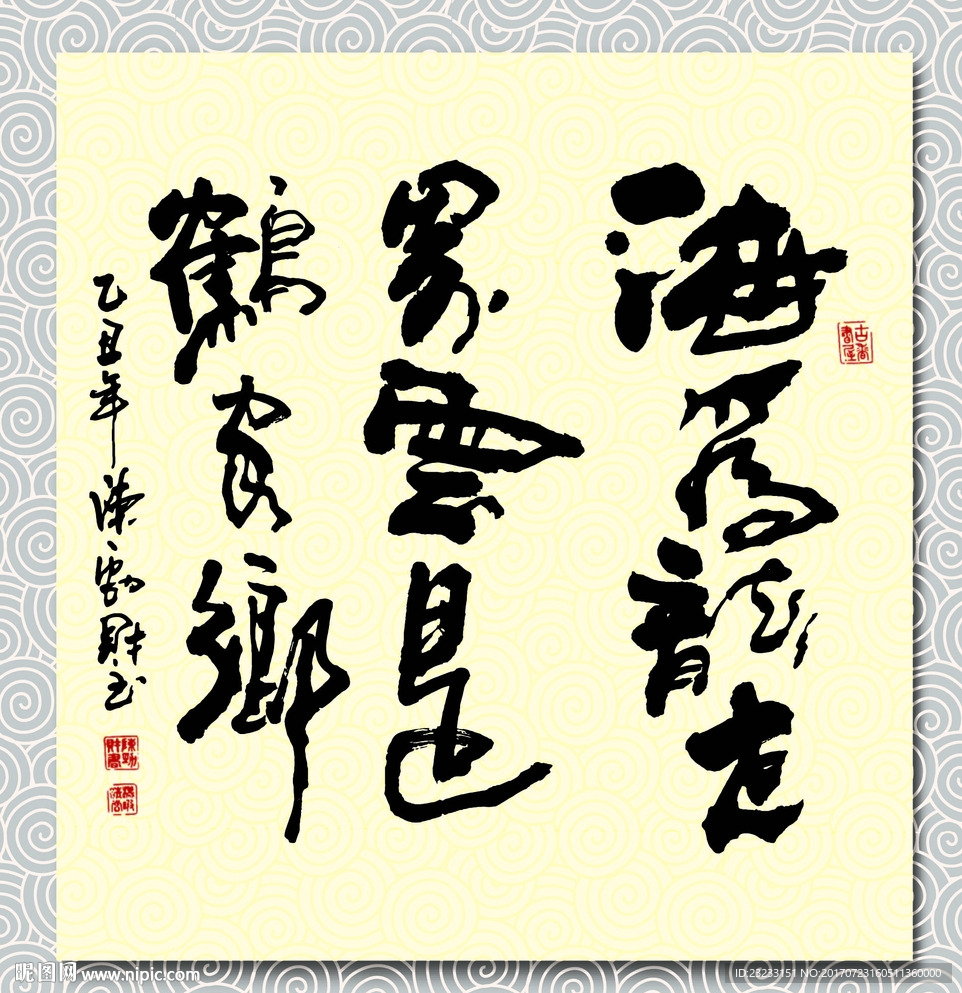 海為龍世
界雲是
鶴家鄉
乙丑年陳勁財書
昵图网 www.nipic.com
ID:23233151 NO:20170723160511360000